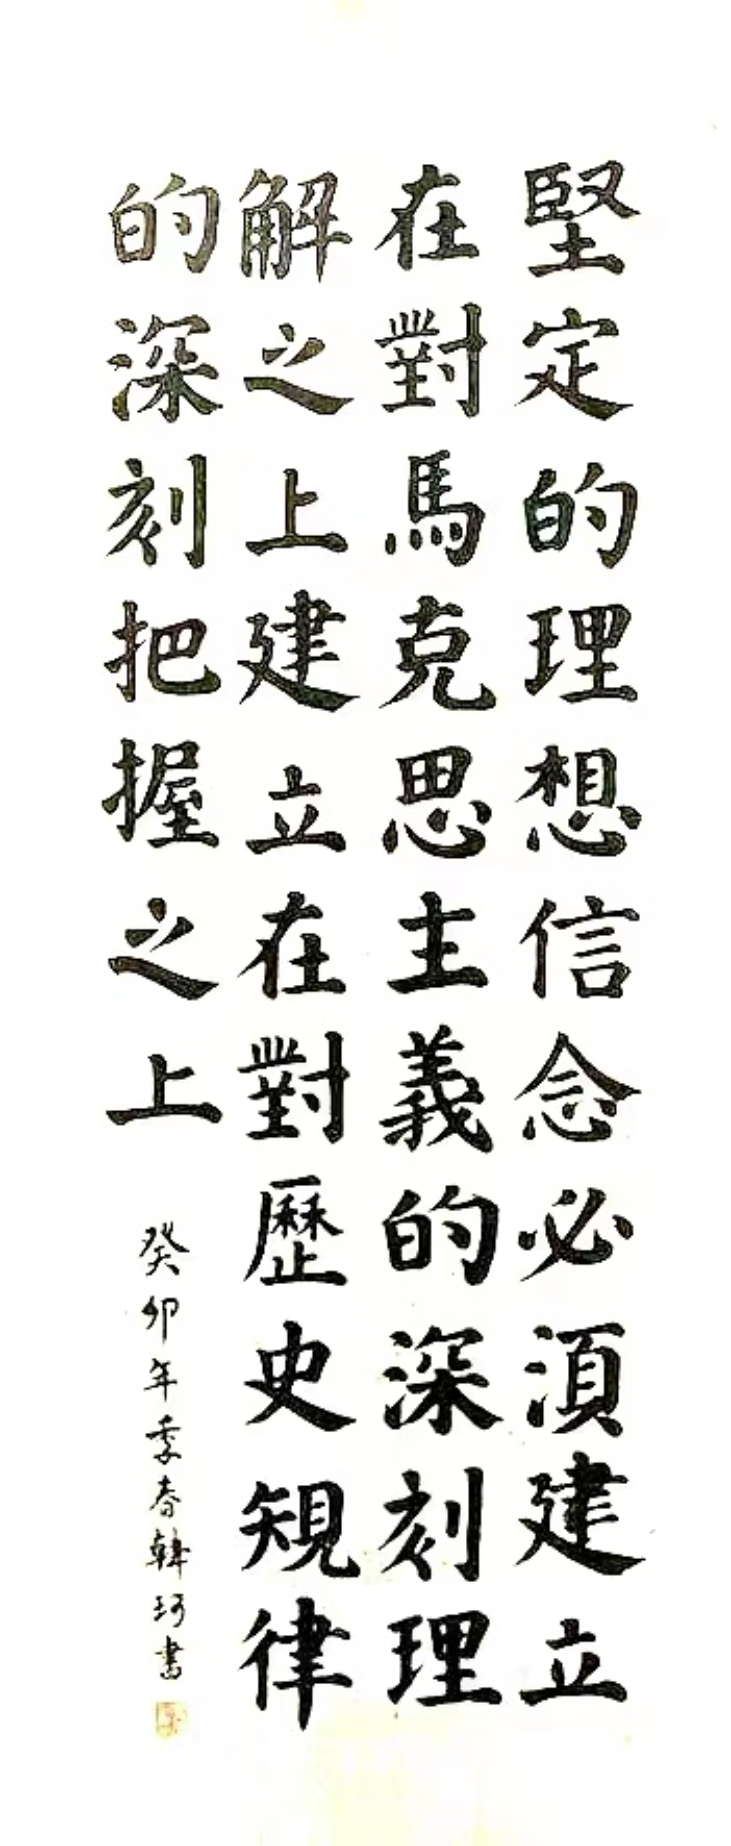 堅定的理想信念必須建立
在對馬克思主義的深刻理
解之上建立在對歷史規律
的深刻把握之上
癸卯年季春韓珂書